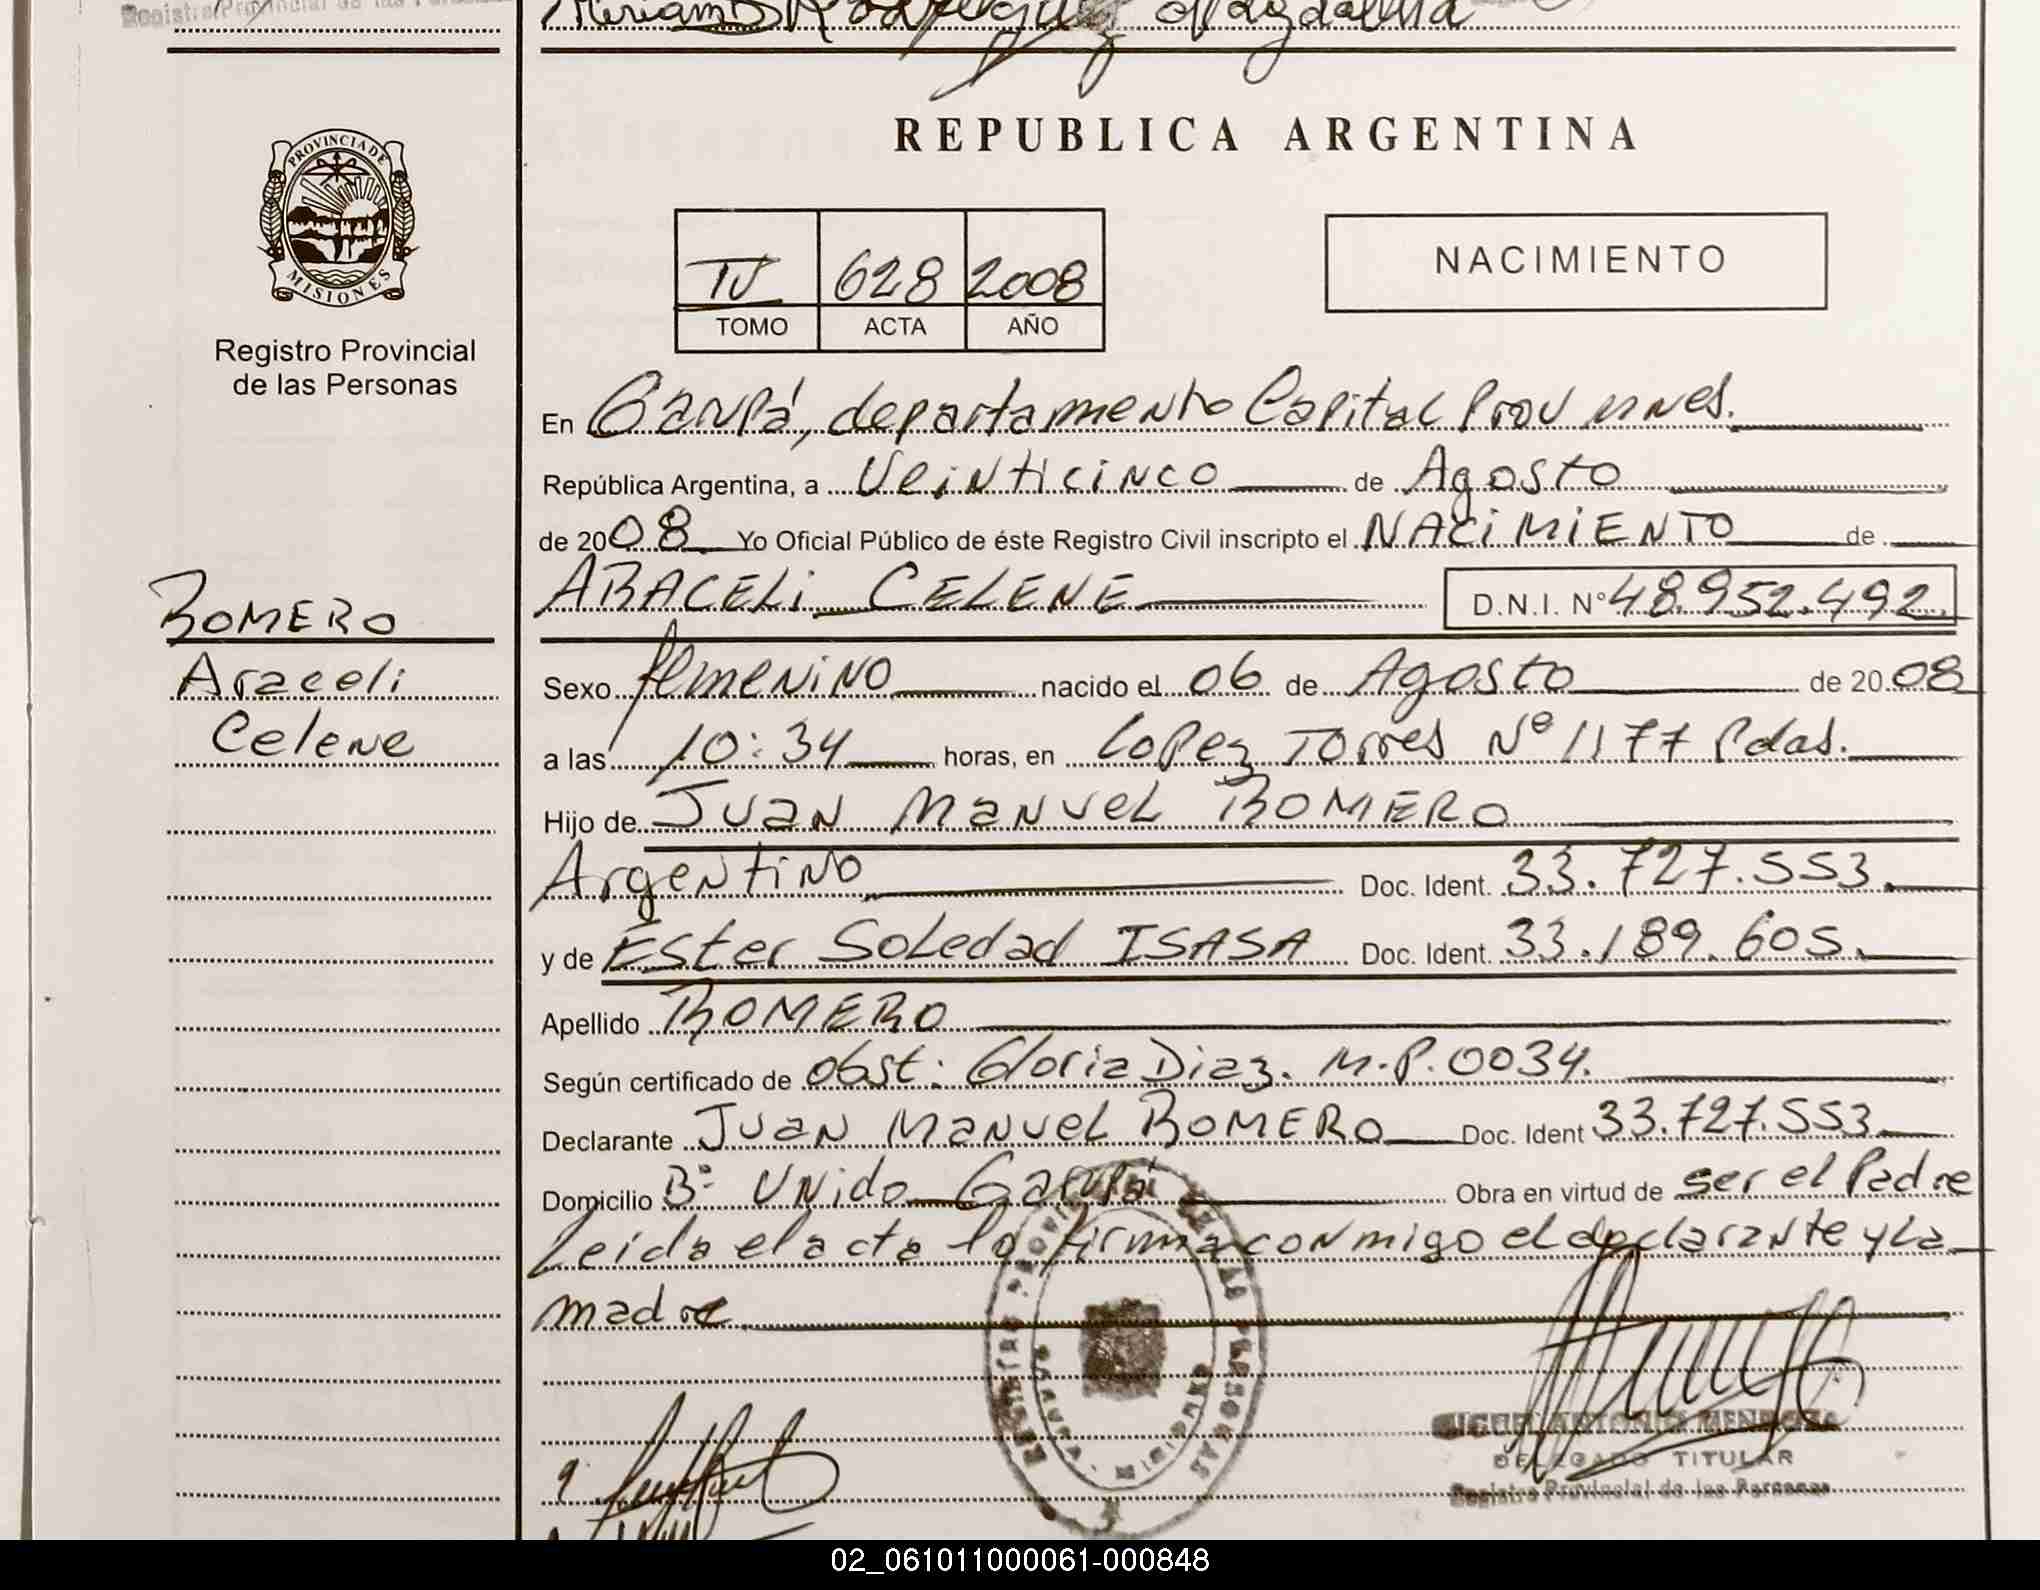 Registro Provincial de las Personas
Miriam B Rodriguez Magdalena
PROVINCIA DE
MISIONES
Registro Provincial
de las Personas
REPUBLICA ARGENTINA
TV 628 2008
TOMO ACTA AÑO
NACIMIENTO
En Garupá, departamento Capital Prov Mnes.
República Argentina, a Veinticinco de Agosto
de 2008 Yo Oficial Público de éste Registro Civil inscripto el NACIMIENTO de
ARACELI CELENE D.N.I. Nº 48.952.492
ROMERO
Araceli
Celene
Sexo femenino nacido el 06 de Agosto de 2008
a las 10:34 horas, en Lopez Torres Nº 1177 Pdas.
Hijo de Juan Manuel ROMERO
Argentino Doc. Ident. 33.727.553.
y de Ester Soledad ISASA Doc. Ident. 33.189.605.
Apellido ROMERO
Según certificado de obst: Gloria Diaz. M.P.0034.
Declarante Juan Manuel ROMERO Doc. Ident 33.727.553
Domicilio Bº Unido Garupá Obra en virtud de ser el Padre
Leida el acta la firma conmigo el declarante y la
madre
REGISTRO PROVINCIAL DE LAS PERSONAS
GARUPA - MISIONES
MIGUEL ANTONIO MENDOZA
DELEGADO TITULAR
Registro Provincial de las Personas
02_061011000061-000848